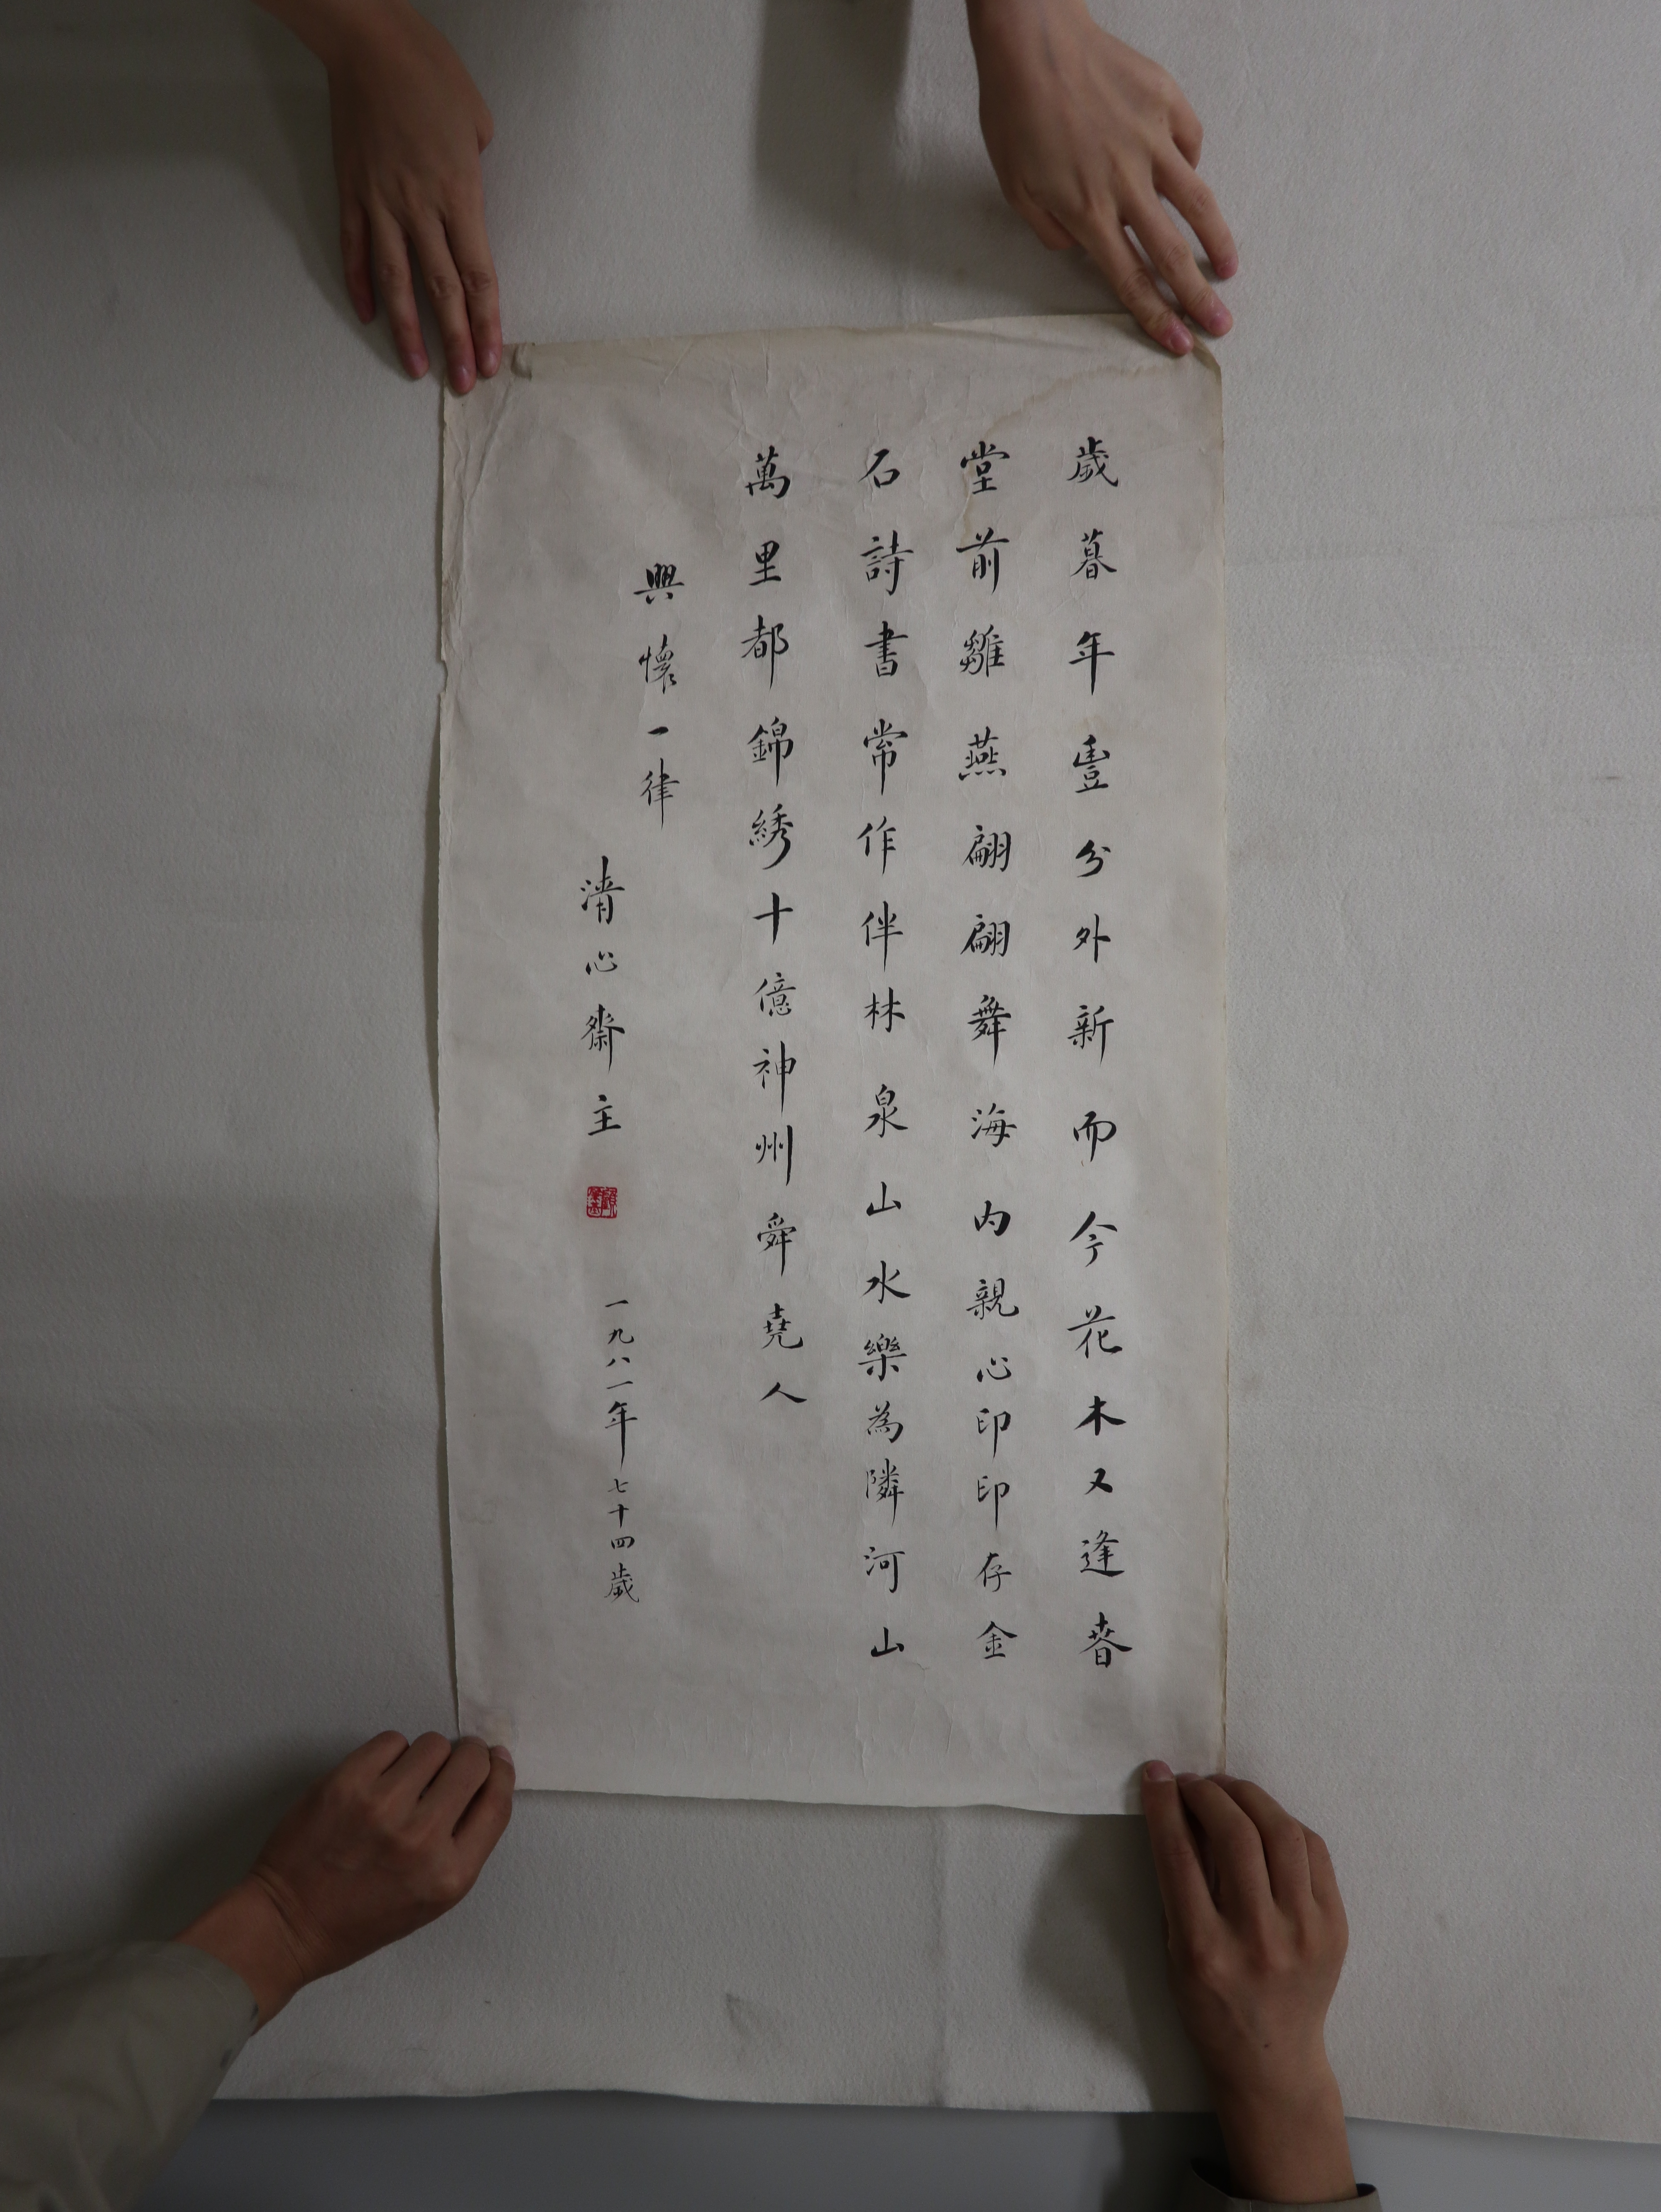 歲暮年豊分外新而今花木又逢春
堂前雛燕翩翩舞海内親心印印存金
石詩書常作伴林泉山水樂為隣河山
萬里都錦綉十億神州舜堯人
興懷一律
清心齋主
一九八一年七十四歲